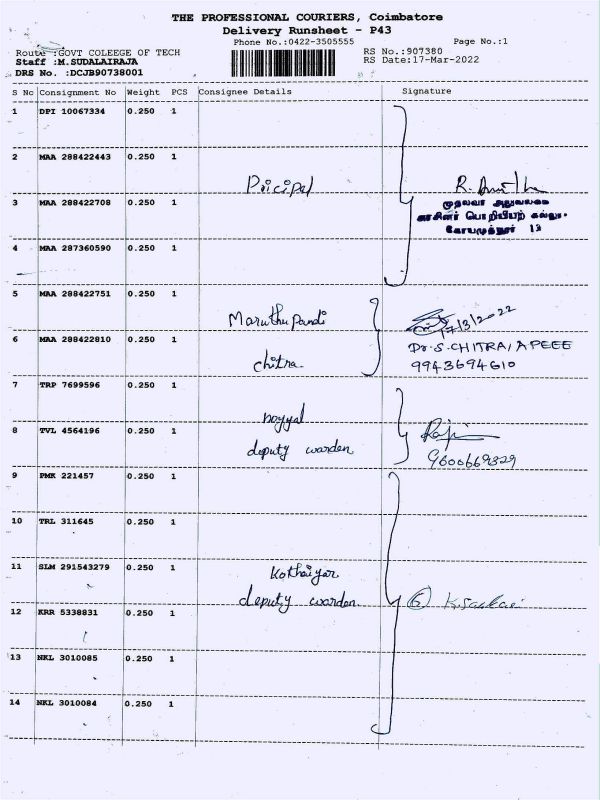 THE PROFESSIONAL COURIERS, Coimbatore
Delivery Runsheet - P43
Phone No.:0422-3505555
Page No.:1
Route :GOVT COLEEGE OF TECH
RS No.:907380
Staff :M.SUDALAIRAJA
RS Date:17-Mar-2022
DRS No. :DCJB90738001
S No Consignment No Weight PCS Consignee Details Signature
1 DPI 10067334 0.250 1
2 MAA 288422443 0.250 1
Pricipal
3 MAA 288422708 0.250 1
முதல்வர் அலுவலகம்
கோயமுத்தூர் 13
4 MAA 287360590 0.250 1
5 MAA 288422751 0.250 1
Maruthupandi 17/3/2022
6 MAA 288422810 0.250 1
Dr.S.CHITRA, APEEE
chitra 9943694610
7 TRP 7699596 0.250 1
noyyal
8 TVL 4564196 0.250 1
deputy warden 9600669329
9 PMK 221457 0.250 1
10 TRL 311645 0.250 1
11 SLM 291543279 0.250 1
Kothaiyar
deputy warden 6
12 KRR 5338831 0.250 1
13 NKL 3010085 0.250 1
14 NKL 3010084 0.250 1